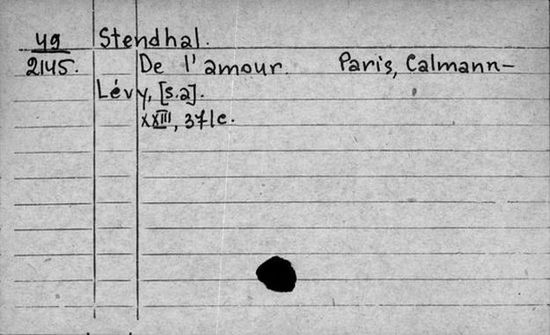 49 Stendhal.
2145. De l'amour. Paris, Calmann-
Lévy, [s.a].
XXIII, 371c.